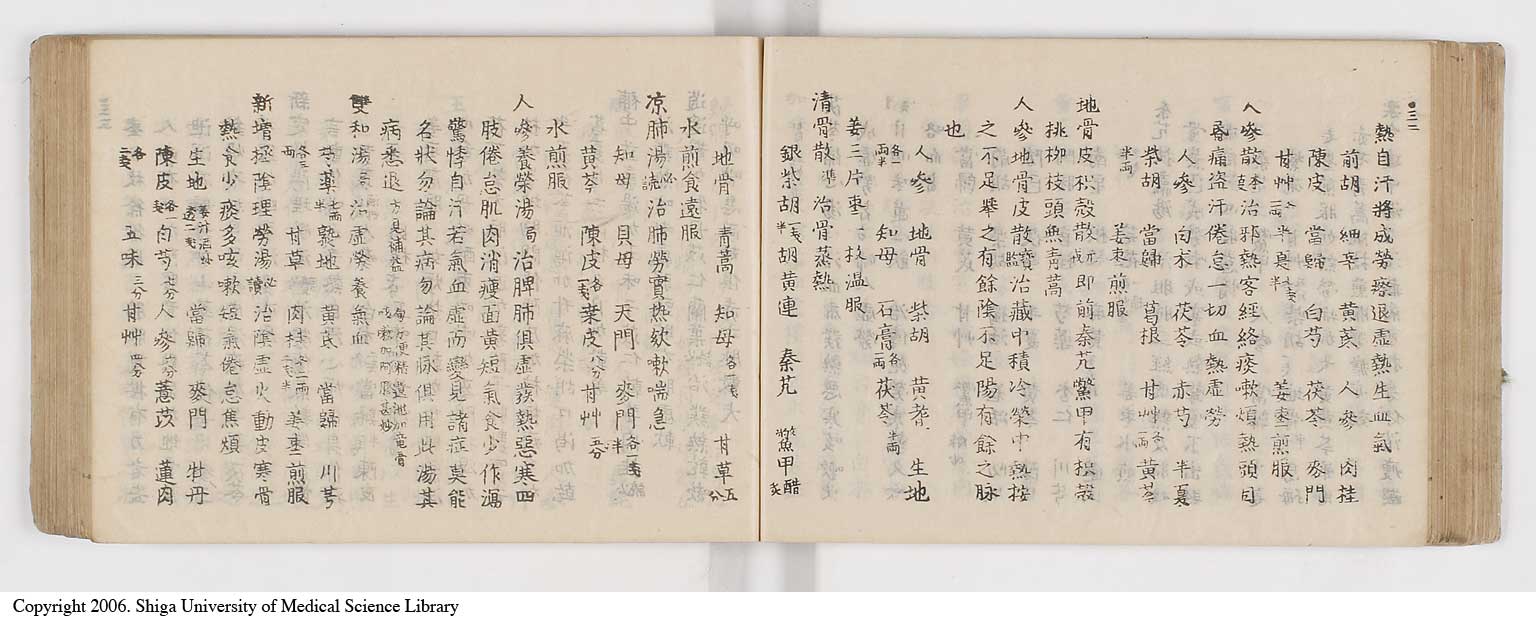 三二
熱自汗將成勞瘵退虛熱生血氣
前胡 細辛 黃芪 人參 肉桂
陳皮 當歸 白芍 茯苓 麥門
甘艸 姜棗煎服
人參散 治邪熱客經絡痰嗽煩熱頭目
昏痛盜汗倦怠一切血熱虛勞
人參 白朮 茯苓 赤芍 半夏
柴胡 當歸 葛根 甘艸各一両 黃芩
半両 姜棗煎服
地骨皮枳殼散 即前秦艽鱉甲有枳殼
桃柳枝頭無青蒿
人參地骨皮散 治藏中積冷榮中熱按
之不足舉之有餘陰不足陽有餘之脉
也
人參 地骨 柴胡 黄耆 生地
各一両半 知母 石膏各一両 茯苓半両
姜三片棗一枚溫服
清骨散 準 治骨蒸熱
銀柴胡一戋半 胡黃連 秦艽 鱉甲醋炙
地骨 青蒿 知母各一戋 甘草五分
水煎食遠服
凉肺湯 必讀 治肺勞實热欬嗽喘急
知母 貝母 天門 麥門各一戋半
黄芩 陳皮各一戋 桑皮八分 甘艸五分
水煎服
人參養榮湯 局 治脾肺俱虛發熱惡寒四
肢倦怠肌肉消瘦面黄短氣食少作瀉
驚悸自汗若氣血虛而變見諸症莫能
名狀勿論其病勿論其脉俱用此湯其
病悉退 方見補益
雙和湯 局 治虛勞養氣血
芍藥七両半 熟地 黃芪 當歸 川芎
各三両 甘草 肉桂 姜棗煎服
新增拯陰理勞湯 必讀 治陰虛火動皮寒骨
熱食少痰多咳嗽短氣倦怠焦煩
生地 當歸 麥門 牡丹
陳皮各一戋 白芍七分 人參六分 薏苡 蓮肉
各二戋 五味三分 甘艸四分
Copyright 2006. Shiga University of Medical Science Library